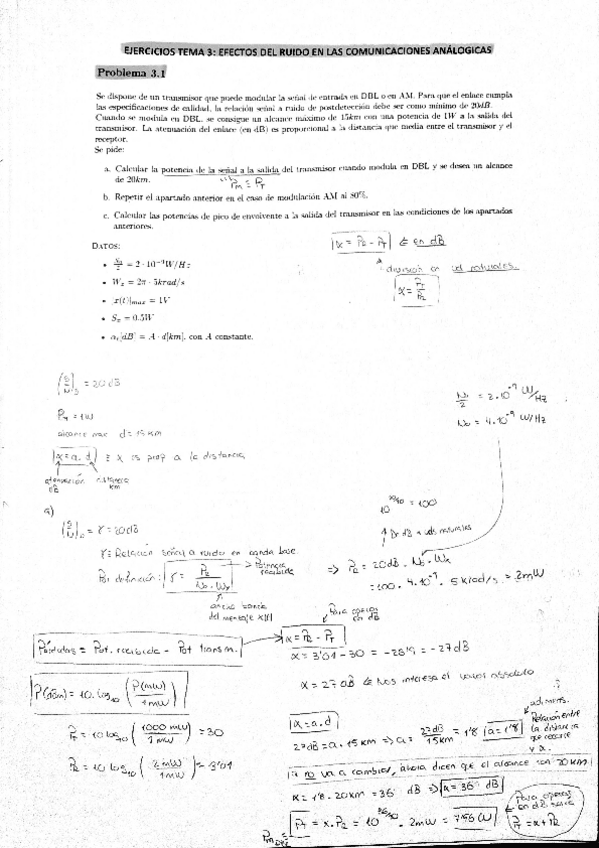 EJERCICIOS TEMA 3: EFECTOS DEL RUIDO EN LAS COMUNICACIONES ANÁLOGICAS
Problema 3.1
Se dispone de un transmisor que puede modular la señal de entrada en DBL o en AM. Para que el enlace cumpla
las especificaciones de calidad, la relación señal a ruido de postdetección debe ser como mínimo de 20dB.
Cuando se modula en DBL, se consigue un alcance máximo de 15km con una potencia de 1W a la salida del
transmisor. La atenuación del enlace (en dB) es proporcional a la distancia que media entre el transmisor y el
receptor.
Se pide:
a. Calcular la potencia de la señal a la salida del transmisor cuando modula en DBL y se desea un alcance
de 20km.
b. Repetir el apartado anterior en el caso de modulación AM al 80%.
c. Calcular las potencias de pico de envolvente a la salida del transmisor en las condiciones de los apartados
anteriores.
α = P_R - P_T ← en dB
división en ud naturales
α = P_T / P_R
DATOS:
• N₀/2 = 2 · 10⁻⁹W/Hz
• W_x = 2π · 5krad/s
• x(t)|max = 1V
• S_x = 0.5W
• α_t[dB] = A · d[km], con A constante.
(S/N)_D = 20dB
P_T = 1W
alcance max d = 15 km
α = a.d α es prop a la distancia
atenuación dB distancia km
N₀/2 = 2·10⁻⁹ W/Hz
N₀ = 4·10⁻⁹ W/Hz
a)
10^20/10 = 100
De dB a uds naturales
(S/N)_D = γ = 20dB
γ = Relación señal a ruido en banda base.
Por definición: γ = P_R / N₀·W_x → Potencia recibida
ancho banda del mensaje x(t)
⇒ P_R = 20dB · N₀ · W_x
= 100 · 4·10⁻⁹ · 5 krad/s = 2mW
Pérdidas = Pot. recibida - Pot transm.
α = P_R - P_T
Para operar en dB
α = 3'01 - 30 = -26'9 = -27dB
α = 27 dB ← Nos interesa el valor absoluto
P(dBm) = 10·log₁₀ (P(mW) / 1mW)
P_T = 10 log₁₀ (1000 mW / 1mW) = 30
P_R = 10 log₁₀ (2mW / 1mW) = 3'01
α = a.d
27dB = a·15km ⇒ a = 27dB / 15km = 1'8 a = 1'8
Relación entre la distancia que recorre y α.
a no va a cambiar, ahora dicen que el alcance son 20km
α = 1'8 · 20km = 36 dB ⇒ α = 36 dB
P_T = α·P_R = 10^36/10 · 2mW = 7'96 W
Para operar en dB sería P_T = α + P_R